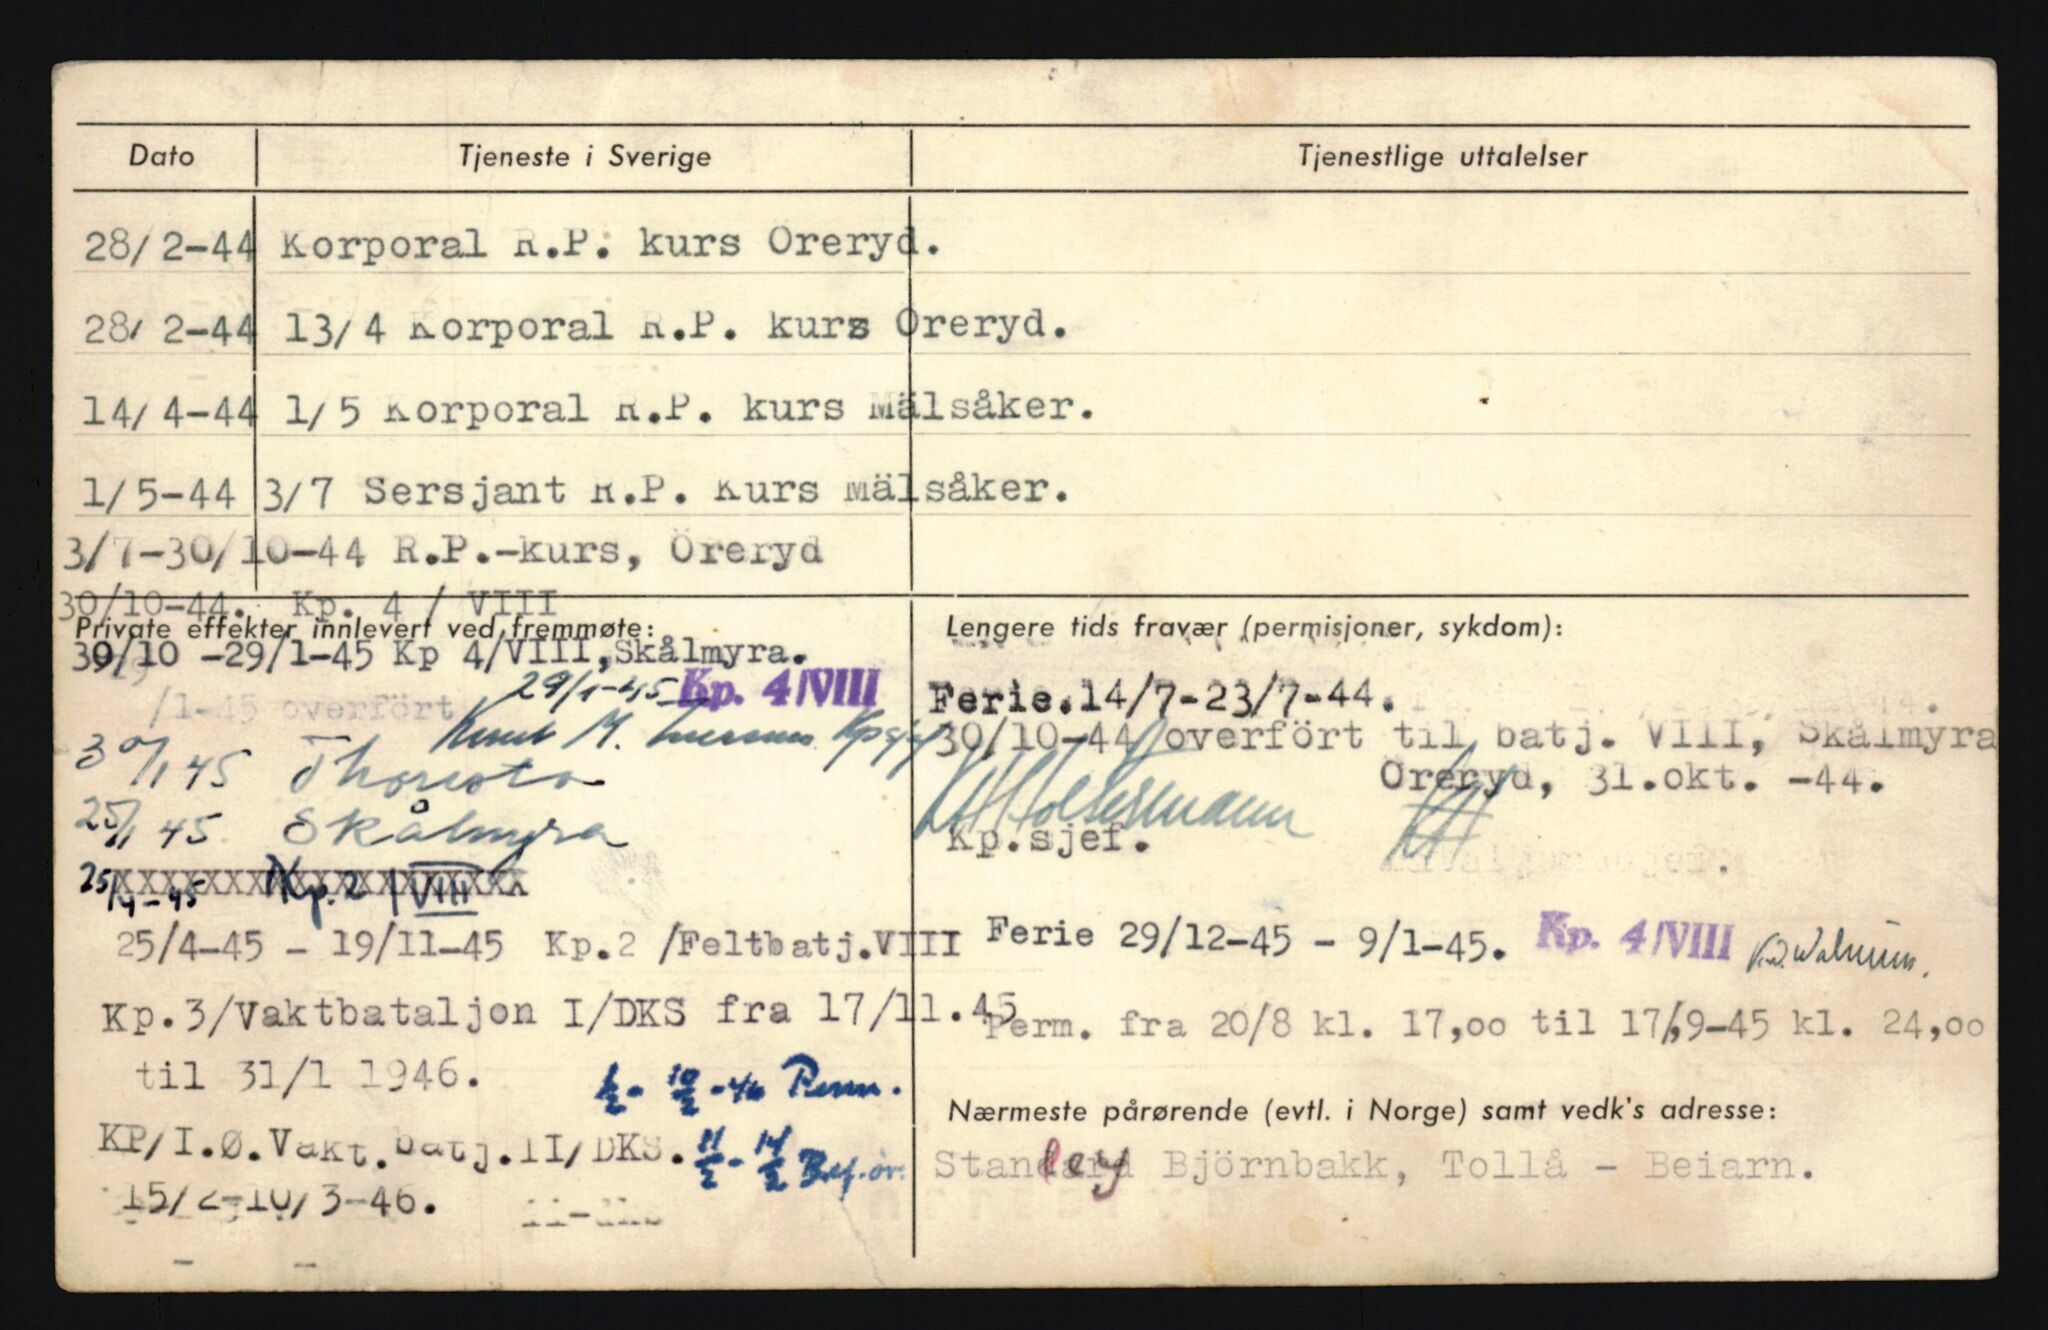 Dato
Tjeneste i Sverige
Tjenestlige uttalelser
28/2-44 Korporal R.P. kurs Öreryd.
28/ 2-44 13/4 Korporal R.P. kurs Öreryd.
14/4-44 1/5 Korporal R.P. kurs Mälsåker.
1/5-44 3/7 Sersjant R.P. Kurs Mälsåker.
3/7-30/10-44 R.P.-kurs, Öreryd
30/10-44. Kp. 4 / VIII
Private effekter innlevert ved fremmøte:
30/10 -29/1-45 Kp 4/VIII, Skålmyra.
/1-45 overfört 29/1-45 Kp. 4/VIII
Knut M.
30/1 45 Thorsta
25/1 45 Skålmyra
25/4-45 XXXXXXXXXXXXXXXXXX Kp. 2 / VIII
25/4-45 - 19/11-45 Kp.2 /Feltbatj.VIII
Kp.3/Vaktbataljon I/DKS fra 17/11.45
til 31/1 1946.
1/2 - 10/2 -46 Perm.
KP/I.Ø.Vakt.batj.II/DKS. 11/2 - 14/2
15/2-10/3-46.
Lengere tids fravær (permisjoner, sykdom):
Ferie.14/7-23/7-44.
30/10-44 overfört til batj. VIII, Skålmyra
Öreryd, 31.okt. -44.
Kp.sjef.
Ferie 29/12-45 - 9/1-45. Kp. 4/VIII
Perm. fra 20/8 kl. 17,oo til 17/9-45 kl. 24,oo
Nærmeste pårørende (evtl. i Norge) samt vedk's adresse:
Stanley Björnbakk, Tollå - Beiarn.